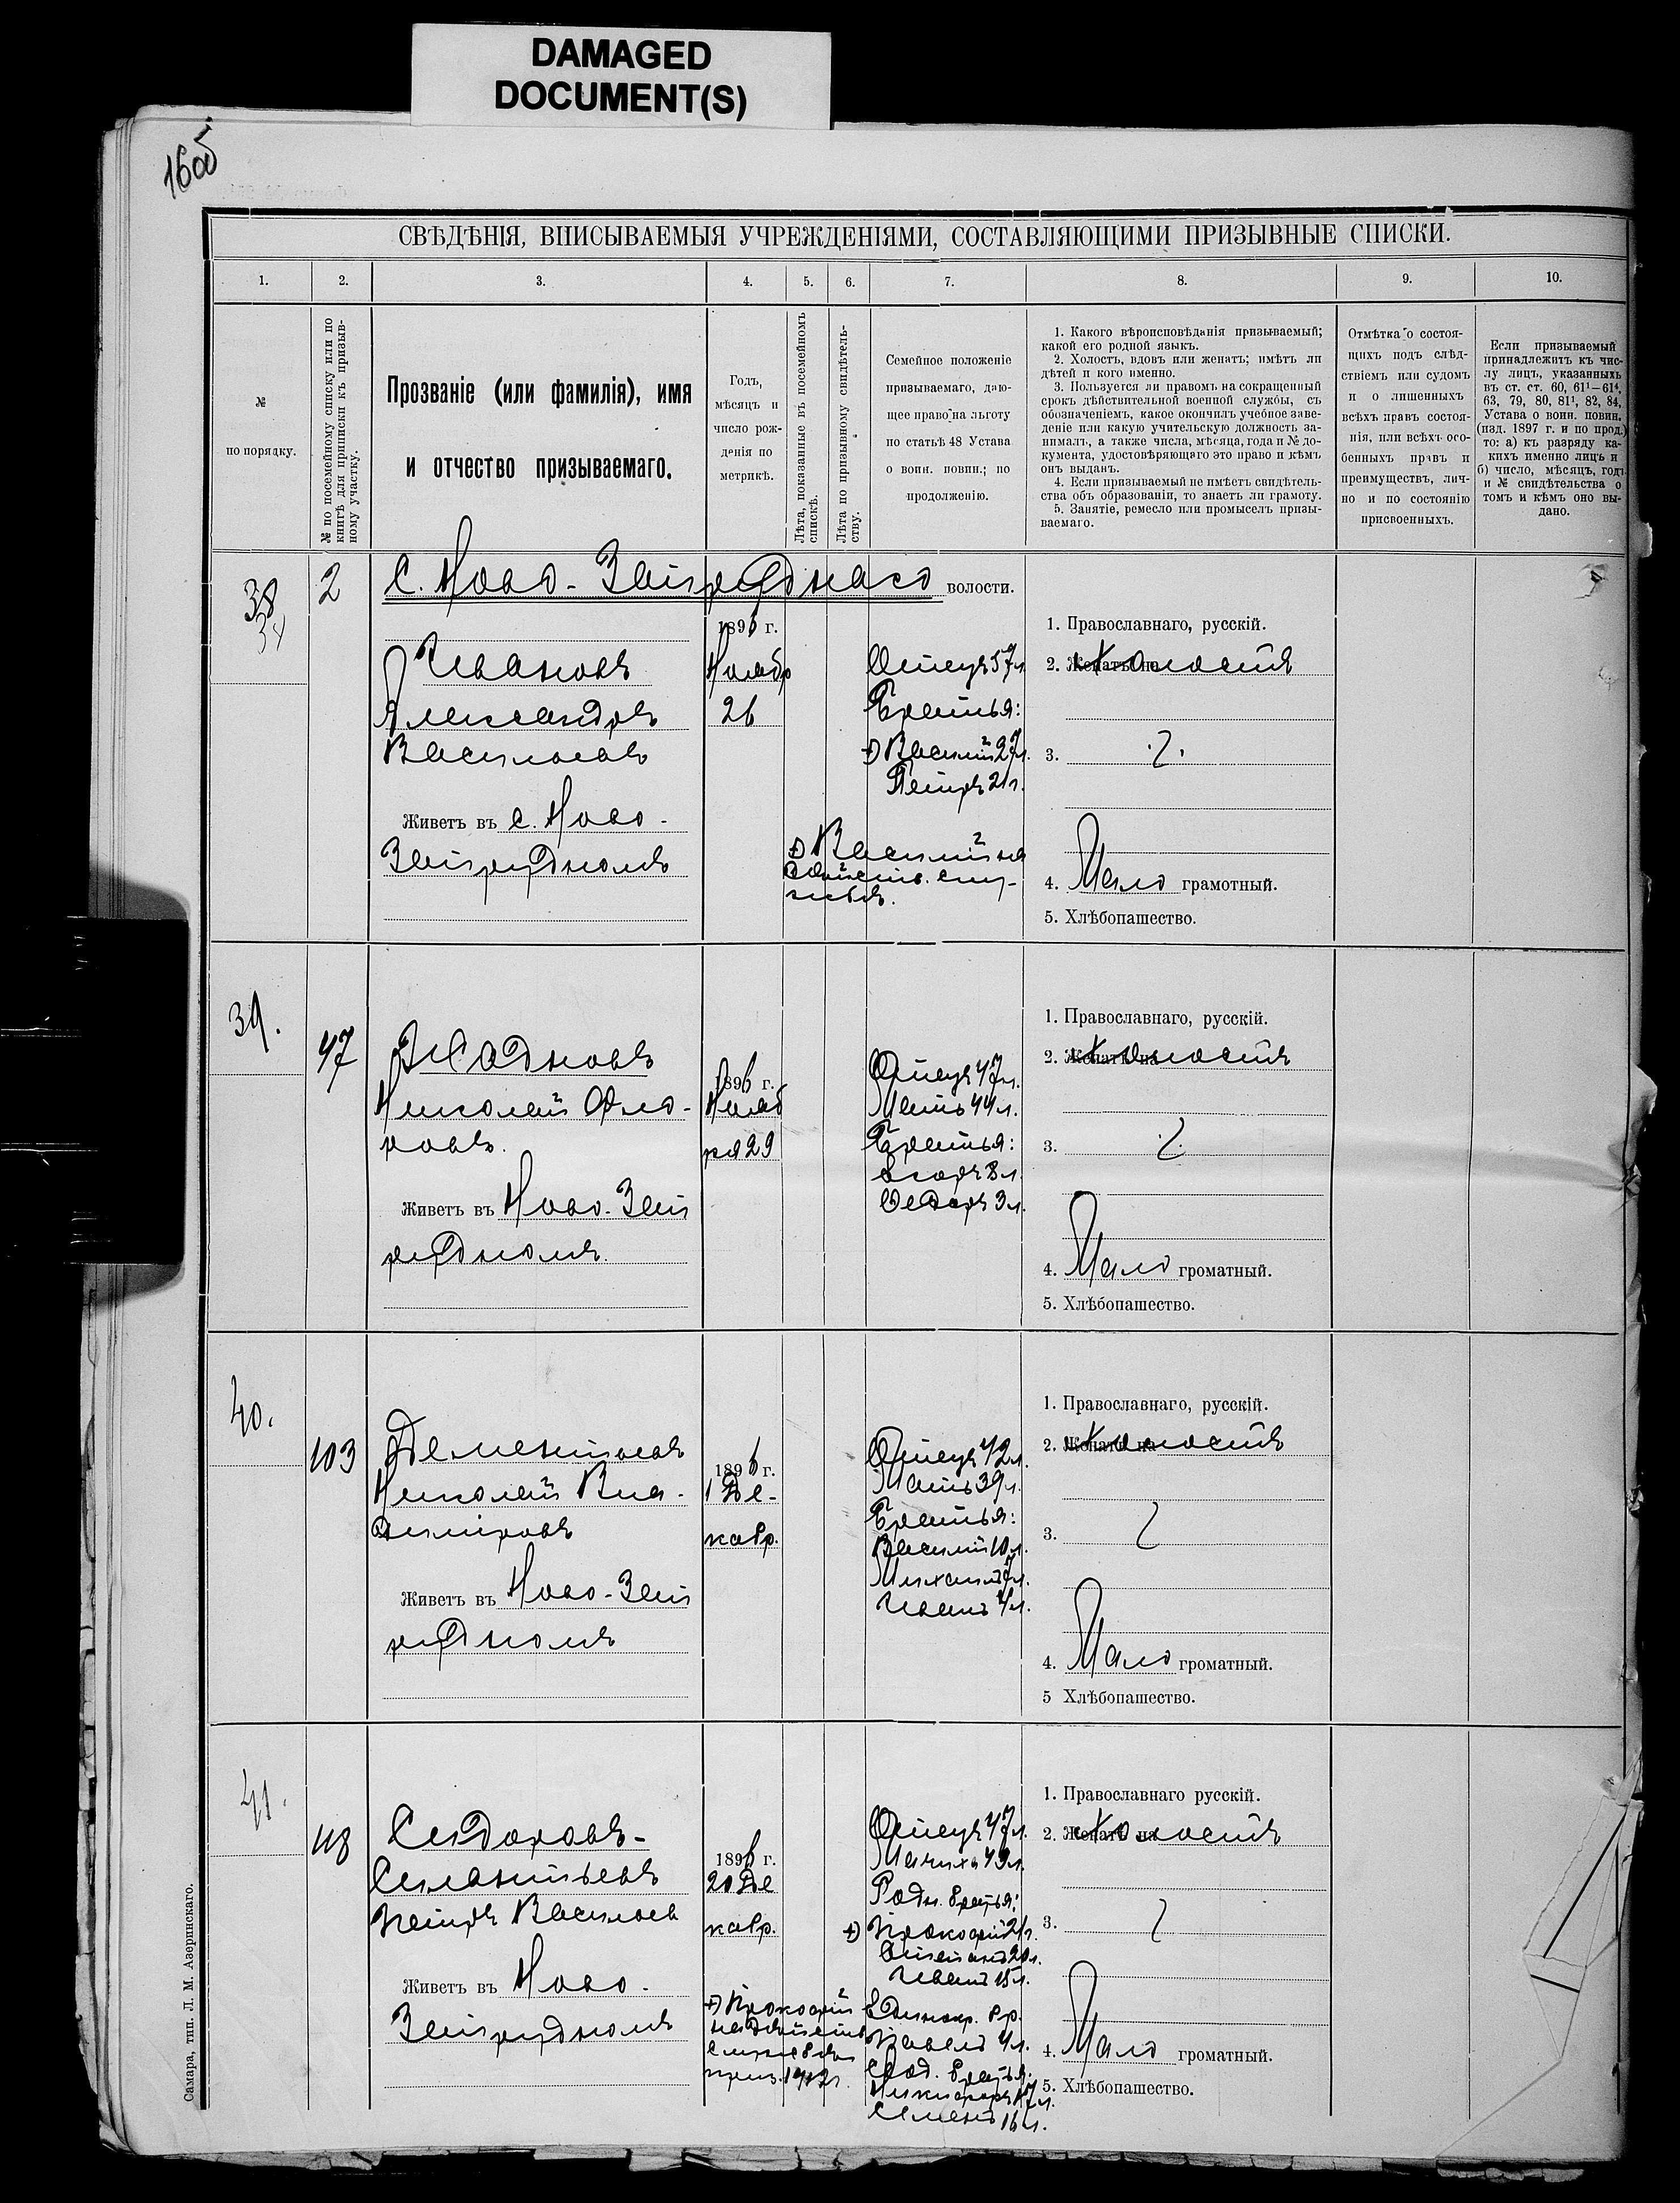 DAMAGED
DOCUMENT(S)
16об
СВѢДѢНІЯ, ВПИСЫВАЕМЫЯ УЧРЕЖДЕНІЯМИ, СОСТАВЛЯЮЩИМИ ПРИЗЫВНЫЕ СПИСКИ.
1. 2. 3. 4. 5. 6. 7. 8. 9. 10.
№
по порядку.
№ по посемейному списку или по
книгѣ для приписки къ призыв-
ному участку.
Прозваніе (или фамилія), имя
и отчество призываемаго.
Годъ,
мѣсяцъ и
число рож-
денія по
метрикѣ.
Лѣта, показанные въ посемейномъ
спискѣ.
Лѣта по призывному свидѣтель-
ству.
Семейное положеніе
призываемаго, даю-
щее право на льготу
по статьѣ 48 Устава
о воин. повин.; по
продолженію.
1. Какого вѣроисповѣданія призываемый;
какой его родной языкъ.
2. Холостъ, вдовъ или женатъ; имѣтъ ли
дѣтей и кого именно.
3. Пользуется ли правомъ на сокращенный
срокъ дѣйствительной военной службы, съ
обозначеніемъ, какое окончилъ учебное заве-
деніе или какую учительскую должность за-
нималъ, а также числа, мѣсяца, года и № до-
кумента, удостовѣряющаго это право и кѣмъ
онъ выданъ.
4. Если призываемый не имѣетъ свидѣтель-
ства объ образованіи, то знаетъ ли грамоту.
5. Занятіе, ремесло или промыселъ призы-
ваемаго.
Отмѣтка о состоя-
щихъ подъ слѣд-
ствіемъ или судомъ
и о лишенныхъ
всѣхъ правъ состоя-
нія, или всѣхъ осо-
бенныхъ правъ и
преимуществъ, лич-
но и по состоянію
присвоенныхъ.
Если призываемый
принадлежитъ къ чис-
лу лицъ, указанныхъ
въ ст. ст. 60, 61¹—61⁴,
63, 79, 80, 81¹, 82, 84,
Устава о воин. повин.
(изд. 1897 г. и по прод.)
то: а) къ разряду ка-
кихъ именно лицъ и
б) число, мѣсяцъ, годъ
и № свидѣтельства о
томъ и кѣмъ оно вы-
дано.
38
34
2
С. Ново-Затруднаго волости.
1896 г.
Ивановъ
Александръ
Васильевъ
Ноябр
26
Живетъ въ с. Ново-
Затрудномъ
Отецъ 57 л.
Братья:
+) Василій 27 л.
Петръ 21 г.
+) Василій на
дѣйств. слу-
жбѣ.
1. Православнаго, русскій.
2. Женатъ на холостъ
3.
4. Мало грамотный.
5. Хлѣбопашество.
39.
47
Жадновъ
Николай Фло-
ровъ.
1896 г.
Нояб
ря 29
Живетъ въ Ново-Зат
рудномъ.
Отецъ 47 л.
Мать 44 л.
Братья:
Егоръ 8 л.
Федоръ 3 л.
1. Православнаго, русскій.
2. Женатъ на холостъ
3.
4. Мало громатный.
5. Хлѣбопашество.
40.
103
Дементьевъ
Николай Вла-
диміровъ
1896 г.
1 Де-
кабр.
Живетъ въ Ново-Зат
рудномъ
Отецъ 42 л.
Мать 39 л.
Братья:
Василій 10 л.
Михаилъ 7 л.
Иванъ 4 л.
1. Православнаго, русскій.
2. Женатъ на холостъ
3.
4. Мало громатный.
5 Хлѣбопашество.
41.
118
Сидоровъ-
Силантьевъ
Петръ Васильев
1896 г.
20 Де
кабр.
Живетъ въ Ново-
Затрудномъ
+) Прокофій
на дѣйств.
службѣ
приз. 1912 г.
Отецъ 47 л.
Мачиха 49 л.
Родн. братья:
+) Прокофій 21 г.
Степанъ 20 л.
Иванъ 15 л.
Единокр. бр.
Павелъ 4 л.
Свод. братья.
Никифоръ 17 л.
Семенъ 16 л.
1. Православнаго русскій.
2. Женатъ на холостъ
3.
4. Мало громатный.
5. Хлѣбопашество.
Самара, тип. Л. М. Азеринскаго.